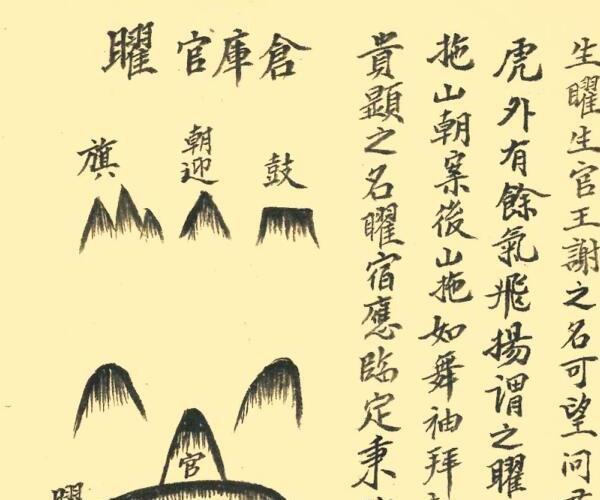 生曜生官王謝之名可望問
虎外有餘氣飛揚謂之曜
拖山朝案後山拖如舞袖拜
貴顯之名曜宿應臨定秉
倉庫官曜
鼓
朝迎
旗
官
曜